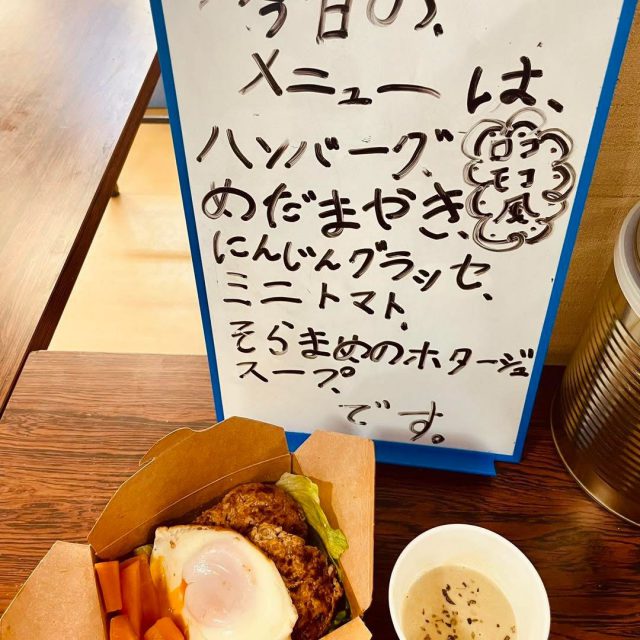 今日の、
メニューは、
ハンバーグ、
ロコモコ風
めだまやき、
にんじんグラッセ、
ミニトマト、
そらまめのホタージュ
スープ、
です。